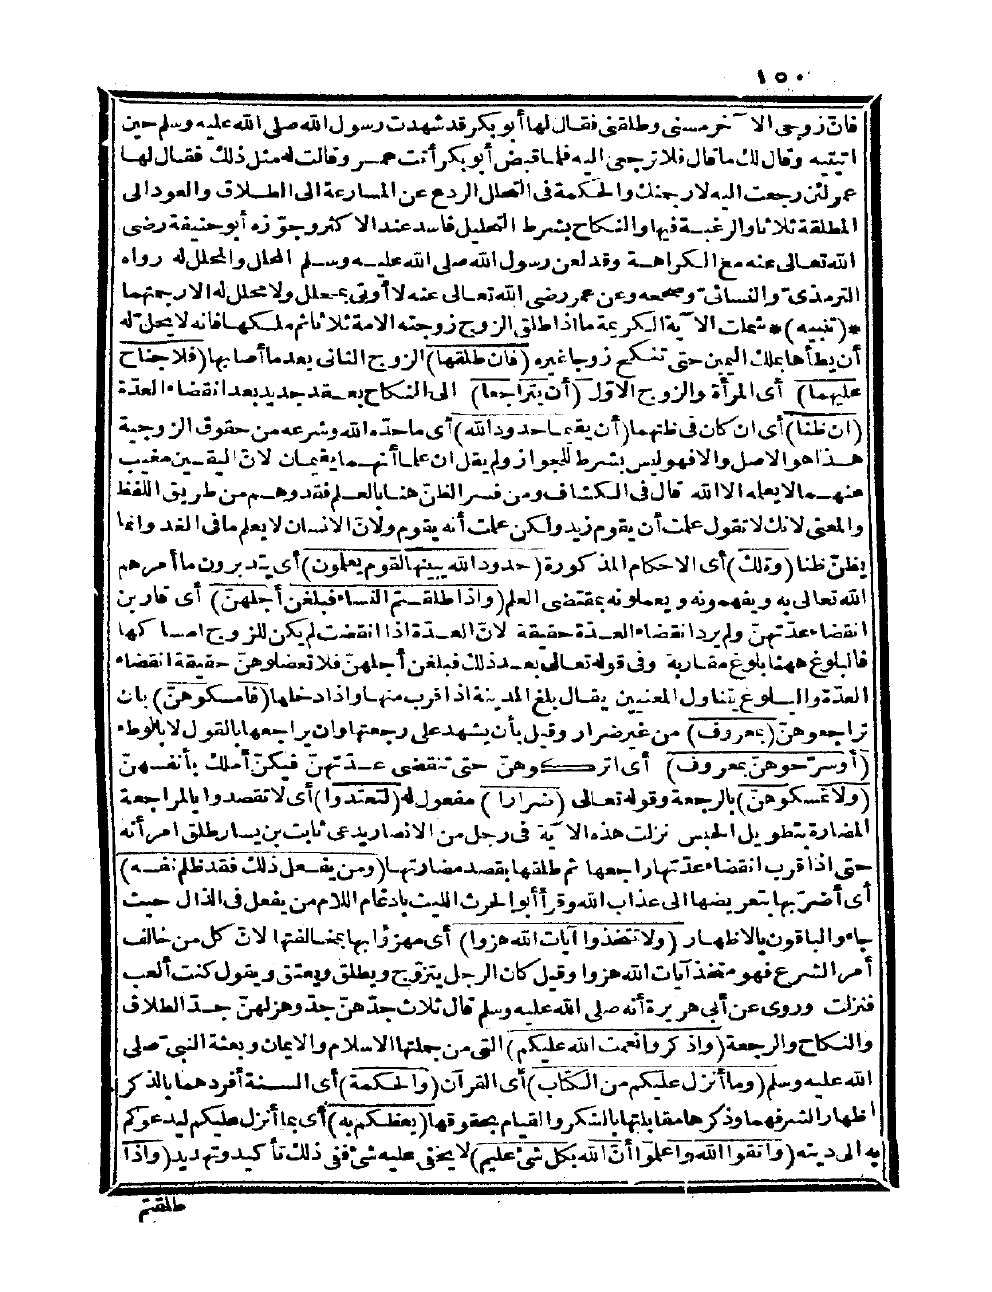 ١٥٠
فانّ زوجى الآخر مسنى وطلقنى فقال لها أبو بكر قد شهدت رسول الله صلى الله عليه وسلم حين
اتيتيه وقال لك ما قال فلا ترجعى اليه فلما قبض أبو بكر أتت عمر وقالت له مثل ذلك فقال لها
عمر لئن رجعت اليه لارجمنك والحكمة فى التحليل الردع عن المسارعة الى الطلاق والعود الى
المطلقة ثلاثا والرغبة فيها والنكاح بشرط التحليل فاسد عند الاكثر وجوّزه أبو حنيفة رضى
الله تعالى عنه مع الكراهة وقد لعن رسول الله صلى الله عليه وسلم المحلل والمحلل له رواه
الترمذىّ والنسائىّ وصححه وعن عمر رضى الله تعالى عنه لا أوتى بمحلل ولا محلل له الا رجمتهما
*(تنبيه)* شملت الآية الكريمة ما اذا طلق الزوج زوجته الامة ثلاثا ثم ملكها فانه لا يحلّ له
أن يطأها بملك اليمين حتى تنكح زوجا غيره (فان طلقها) الزوج الثانى بعد ما أصابها (فلا جناح
عليهما) أى المرأة والزوج الاوّل (أن يتراجعا) الى النكاح بعقد جديد بعد انقضاء العدّة
(ان ظنا) أى ان كان فى ظنهما (أن يقيما حدود الله) أى ما حدّه الله وشرعه من حقوق الزوجية
هذا هو الاصل والا فهو ليس بشرط للجواز ولم يقل ان علما أنهما يقيمان لانّ اليقين مغيب
عنهما لا يعلمه الا الله قال فى الكشاف ومن فسر الظنّ هنا بالعلم فقد وهم من طريق اللفظ
والمعنى لانك لا تقول علمت أن يقوم زيد ولكن علمت أنه يقوم ولانّ الانسان لا يعلم ما فى الغد وانما
يظنّ ظنا (وتلك) أى الاحكام المذكورة (حدود الله يبينها لقوم يعلمون) أى يتدبرون ما أمرهم
الله تعالى به ويفهمونه ويعملونه بمقتضى العلم (واذا طلقتم النساء فبلغن أجلهنّ) أى قاربن
انقضاء عدّتهنّ ولم يرد انقضاء العدّة حقيقة لانّ العدّة اذا انقضت لم يكن للزوج امساكها
فالبلوغ ههنا بلوغ مقاربة وفى قوله تعالى بعد ذلك فبلغن أجلهنّ فلا تعضلوهنّ حقيقة انقضاء
العدّة والبلوغ يتناول المعنيين يقال بلغ المدينة اذا قرب منها واذا دخلها (فامسكوهنّ) بان
تراجعوهنّ (بمعروف) من غير ضرار وقيل بأن يشهد على رجعتها وان يراجعها بالقول لا بالوطء
(أو سرّحوهنّ بمعروف) أى اتركوهنّ حتى تنقضى عدّتهنّ فيكنّ أملك بأنفسهنّ
(ولا تمسكوهنّ) بالرجعة وقوله تعالى (ضرارا) مفعول له (لتعتدوا) أى لا تقصدوا بالمراجعة
المضارة بتطويل الحبس نزلت هذه الآية فى رجل من الانصار يدعى ثابت بن يسار طلق امرأته
حتى اذا قرب انقضاء عدّتها راجعها ثم طلقها بقصد مضارتها (ومن يفعل ذلك فقد ظلم نفسه)
أى أضرّ بها بتعريضها الى عذاب الله وقرأ أبو الحرث الليث بادغام اللام من يفعل فى الذال حيث
جاء والباقون بالاظهار (ولا تتخذوا آيات الله هزوا) أى مهزؤا بها بمخالفتها لانّ كل من خالف
أمر الشرع فهو متخذ آيات الله هزوا وقيل كان الرجل يتزوّج ويطلق ويعتق ويقول كنت ألعب
فنزلت وروى عن أبى هريرة أنه صلى الله عليه وسلم قال ثلاث جدّهنّ جدّ وهزلهنّ جدّ الطلاق
والنكاح والرجعة (واذكروا نعمت الله عليكم) التى من جملتها الاسلام والايمان وبعثة النبىّ صلى
الله عليه وسلم (وما أنزل عليكم من الكتاب) أى القرآن (والحكمة) أى السنة أفردهما بالذكر
اظهارا لشرفهما وذكرها مقابلتها بالشكر والقيام بحقوقها (يعظكم به) أى بما أنزل عليكم ليدعوكم
به الى دينه (واتقوا الله واعلموا أنّ الله بكل شئ عليم) لا يخفى عليه شئ ففى ذلك تأكيد وتهديد (واذا
طلقتم